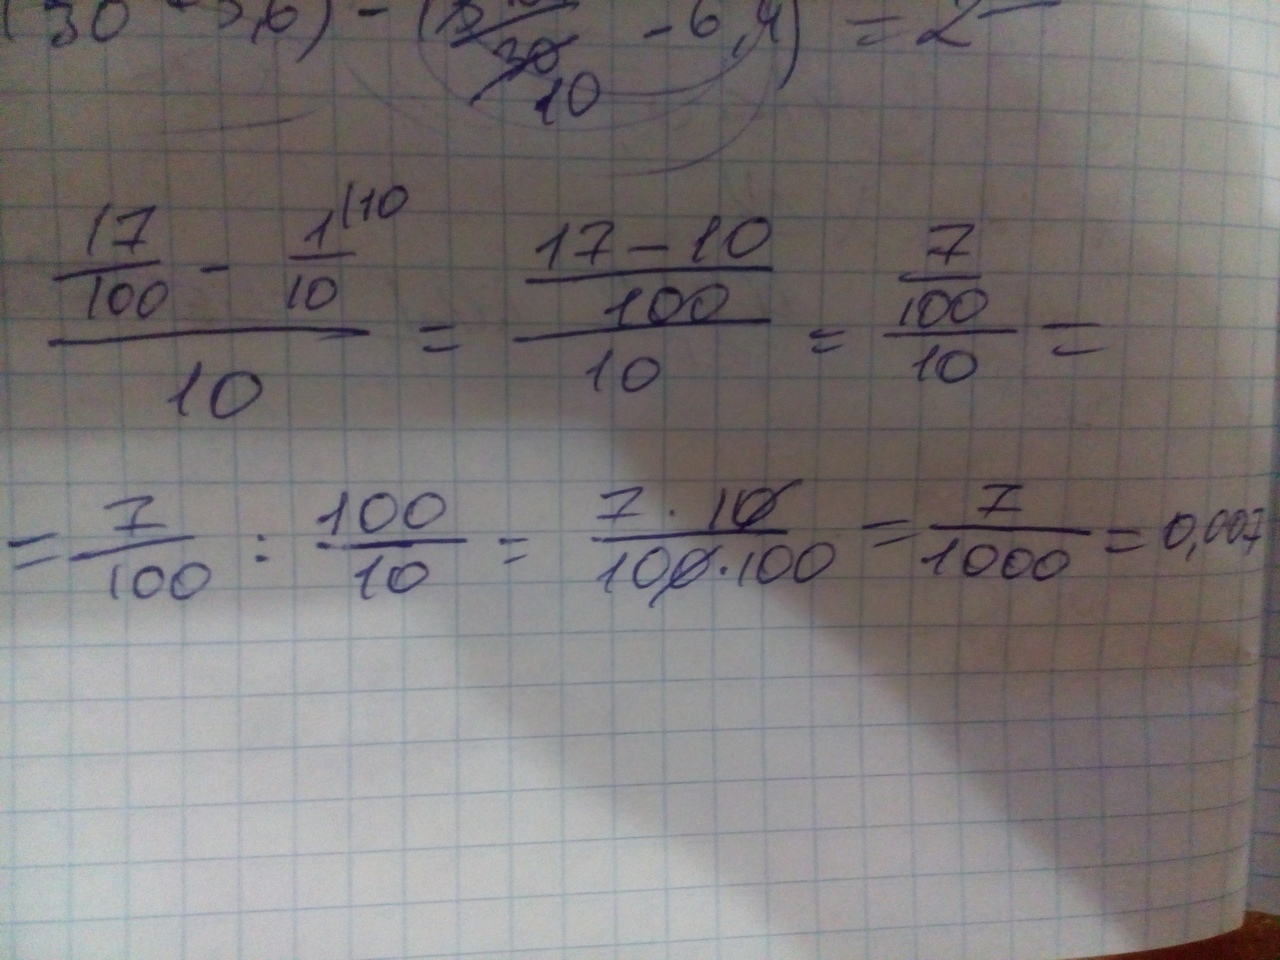 (30 - 6) - ( 30 10 - 6,4) = 2
17/100 - 1/10 (10 / 10 = 17 - 10/100 / 10 = 7/100 / 10 =
= 7/100 : 100/10 = 7 · 10/100 · 100 = 7/1000 = 0,007